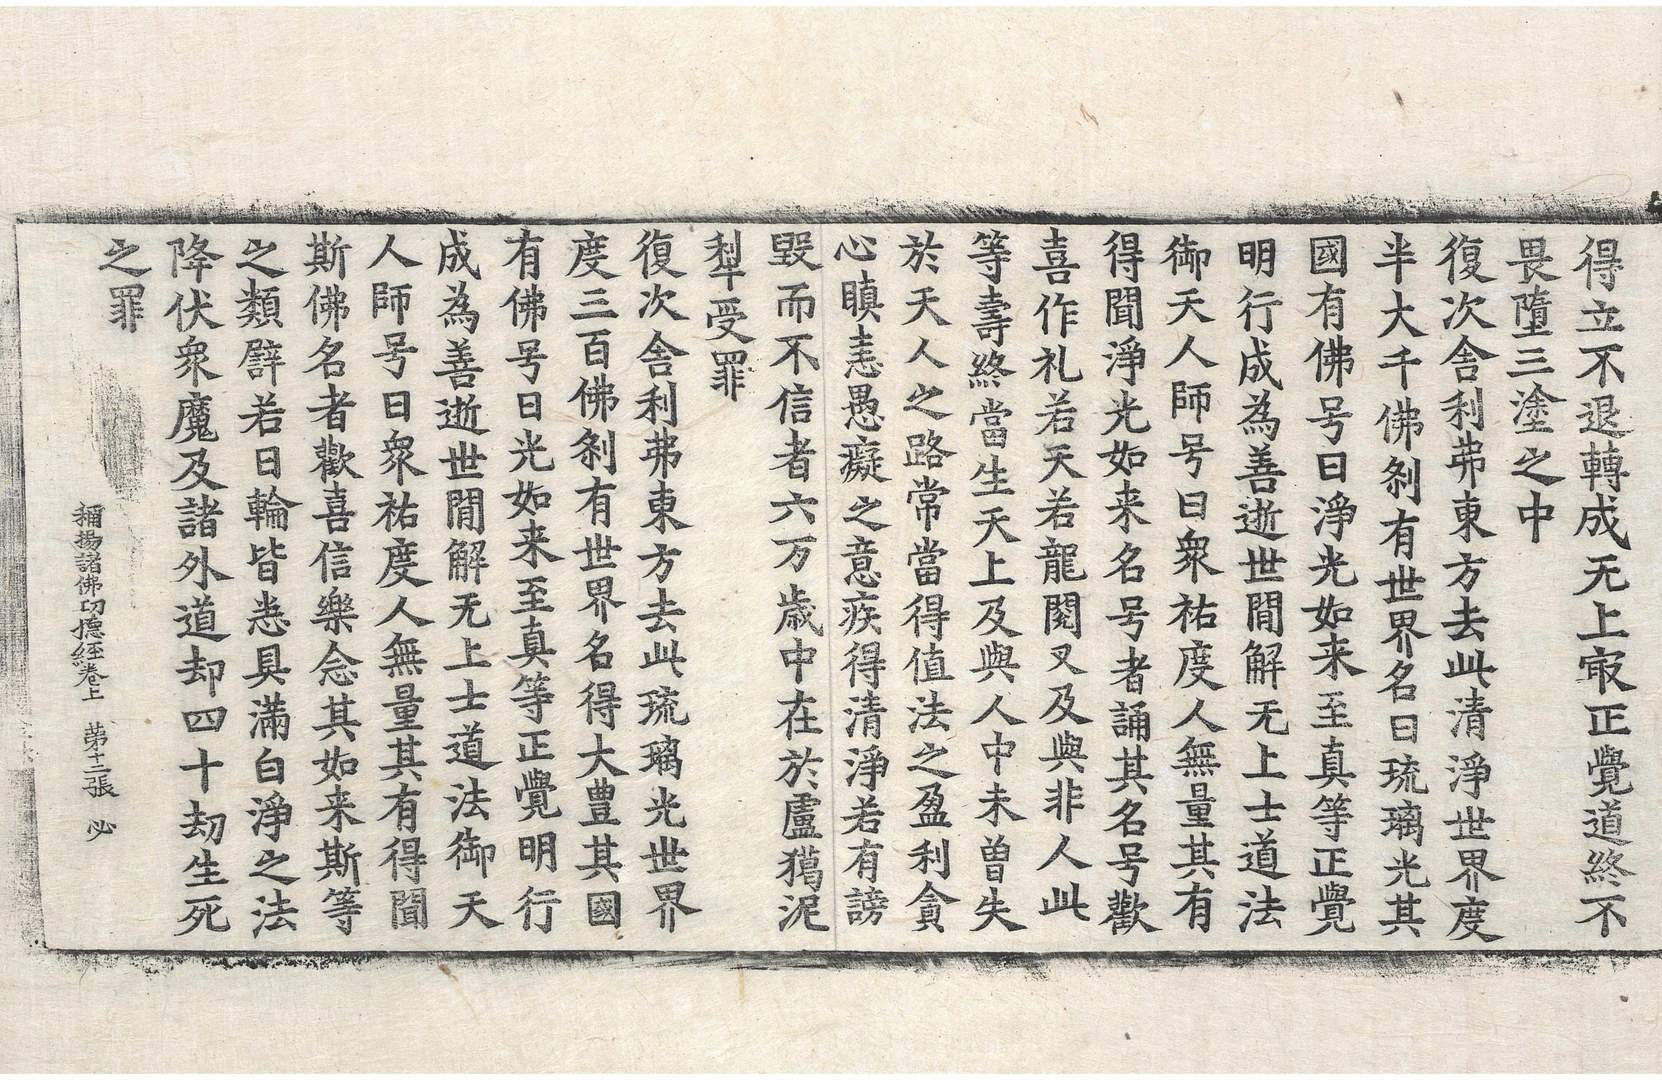 得立不退轉成无上㝡正覺道終不
畏墮三塗之中
復次舍利弗東方去此清淨世界度
半大千佛刹有世界名曰琉璃光其
國有佛号曰淨光如来至真等正覺
明行成為善逝世間解无上士道法
御天人師号曰衆祐度人無量其有
得聞淨光如来名号者誦其名号歡
喜作礼若天若龍閱叉及與非人此
等壽終當生天上及與人中未曾失
於天人之路常當得值法之盈利貪
心瞋恚愚癡之意疾得清淨若有謗
毀而不信者六万歲中在於盧獦泥
犁受罪
復次舍利弗東方去此琉璃光世界
度三百佛刹有世界名得大豊其國
有佛号曰光如来至真等正覺明行
成為善逝世間解无上士道法御天
人師号曰衆祐度人無量其有得聞
斯佛名者歡喜信樂念其如来斯等
之類譬若日輪皆悉具滿白淨之法
降伏衆魔及諸外道却四十劫生死
之罪
稱揚諸佛功德経卷上 苐十二張 必